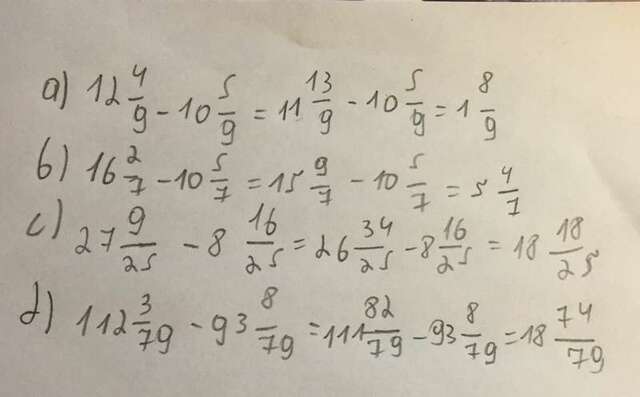 a) 12 4/9 - 10 5/9 = 11 13/9 - 10 5/9 = 1 8/9
b) 16 2/7 - 10 5/7 = 15 9/7 - 10 5/7 = 5 4/7
c) 27 9/25 - 8 16/25 = 26 34/25 - 8 16/25 = 18 18/25
d) 112 3/79 - 93 8/79 = 111 82/79 - 93 8/79 = 18 74/79